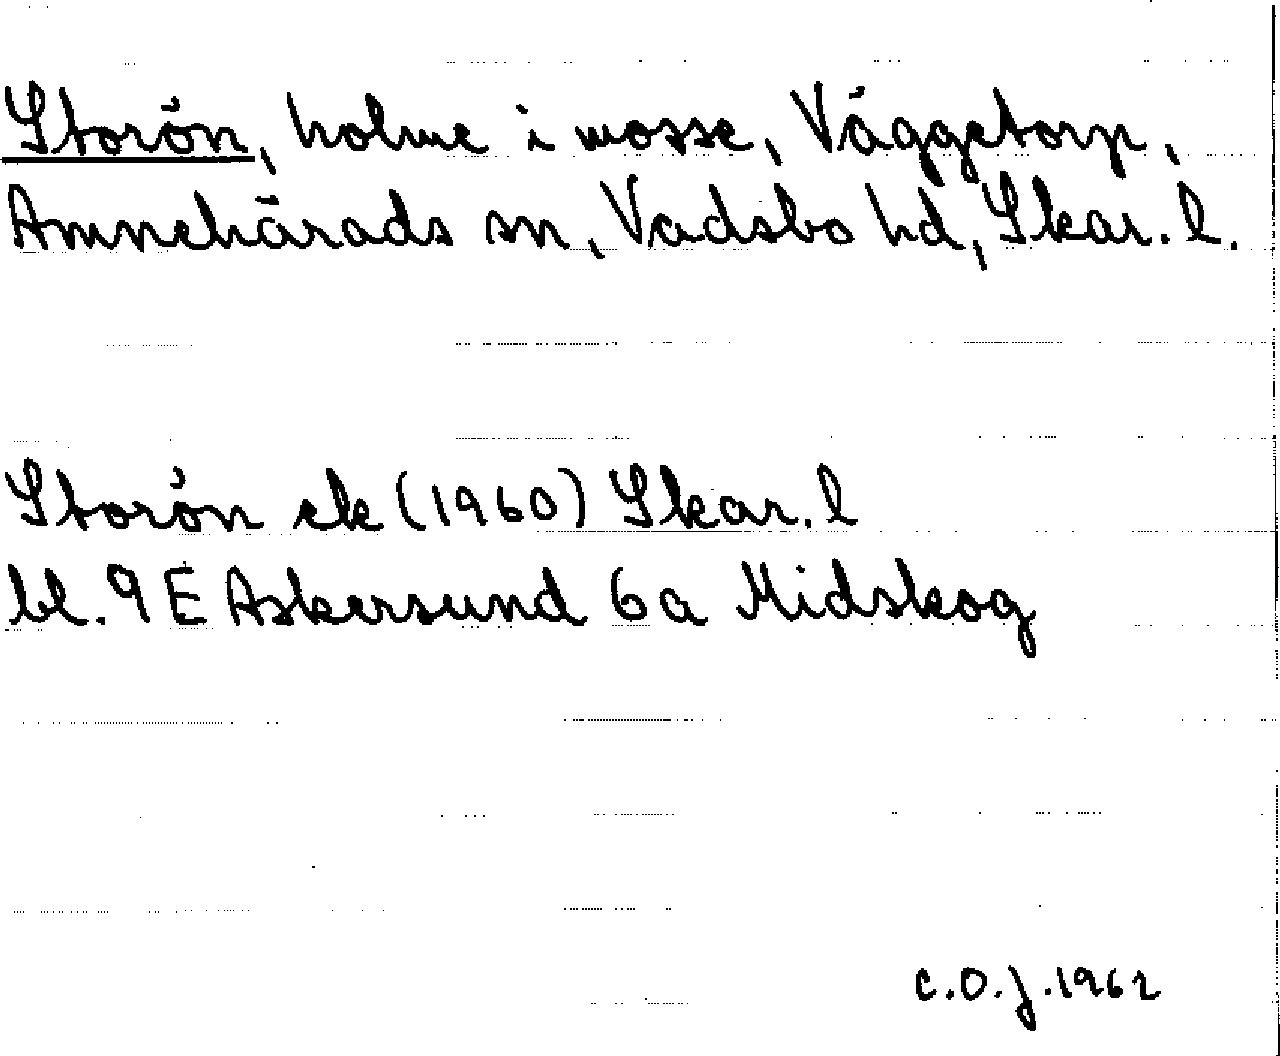 Storön, holme i mosse, Väggetorp,
Amnehärads sn, Vadsbo hd, Skar. l.
Storön ek (1960) Skar. l
bl. 9 E Askersund 6 a Midskog
C.O.J. 1962